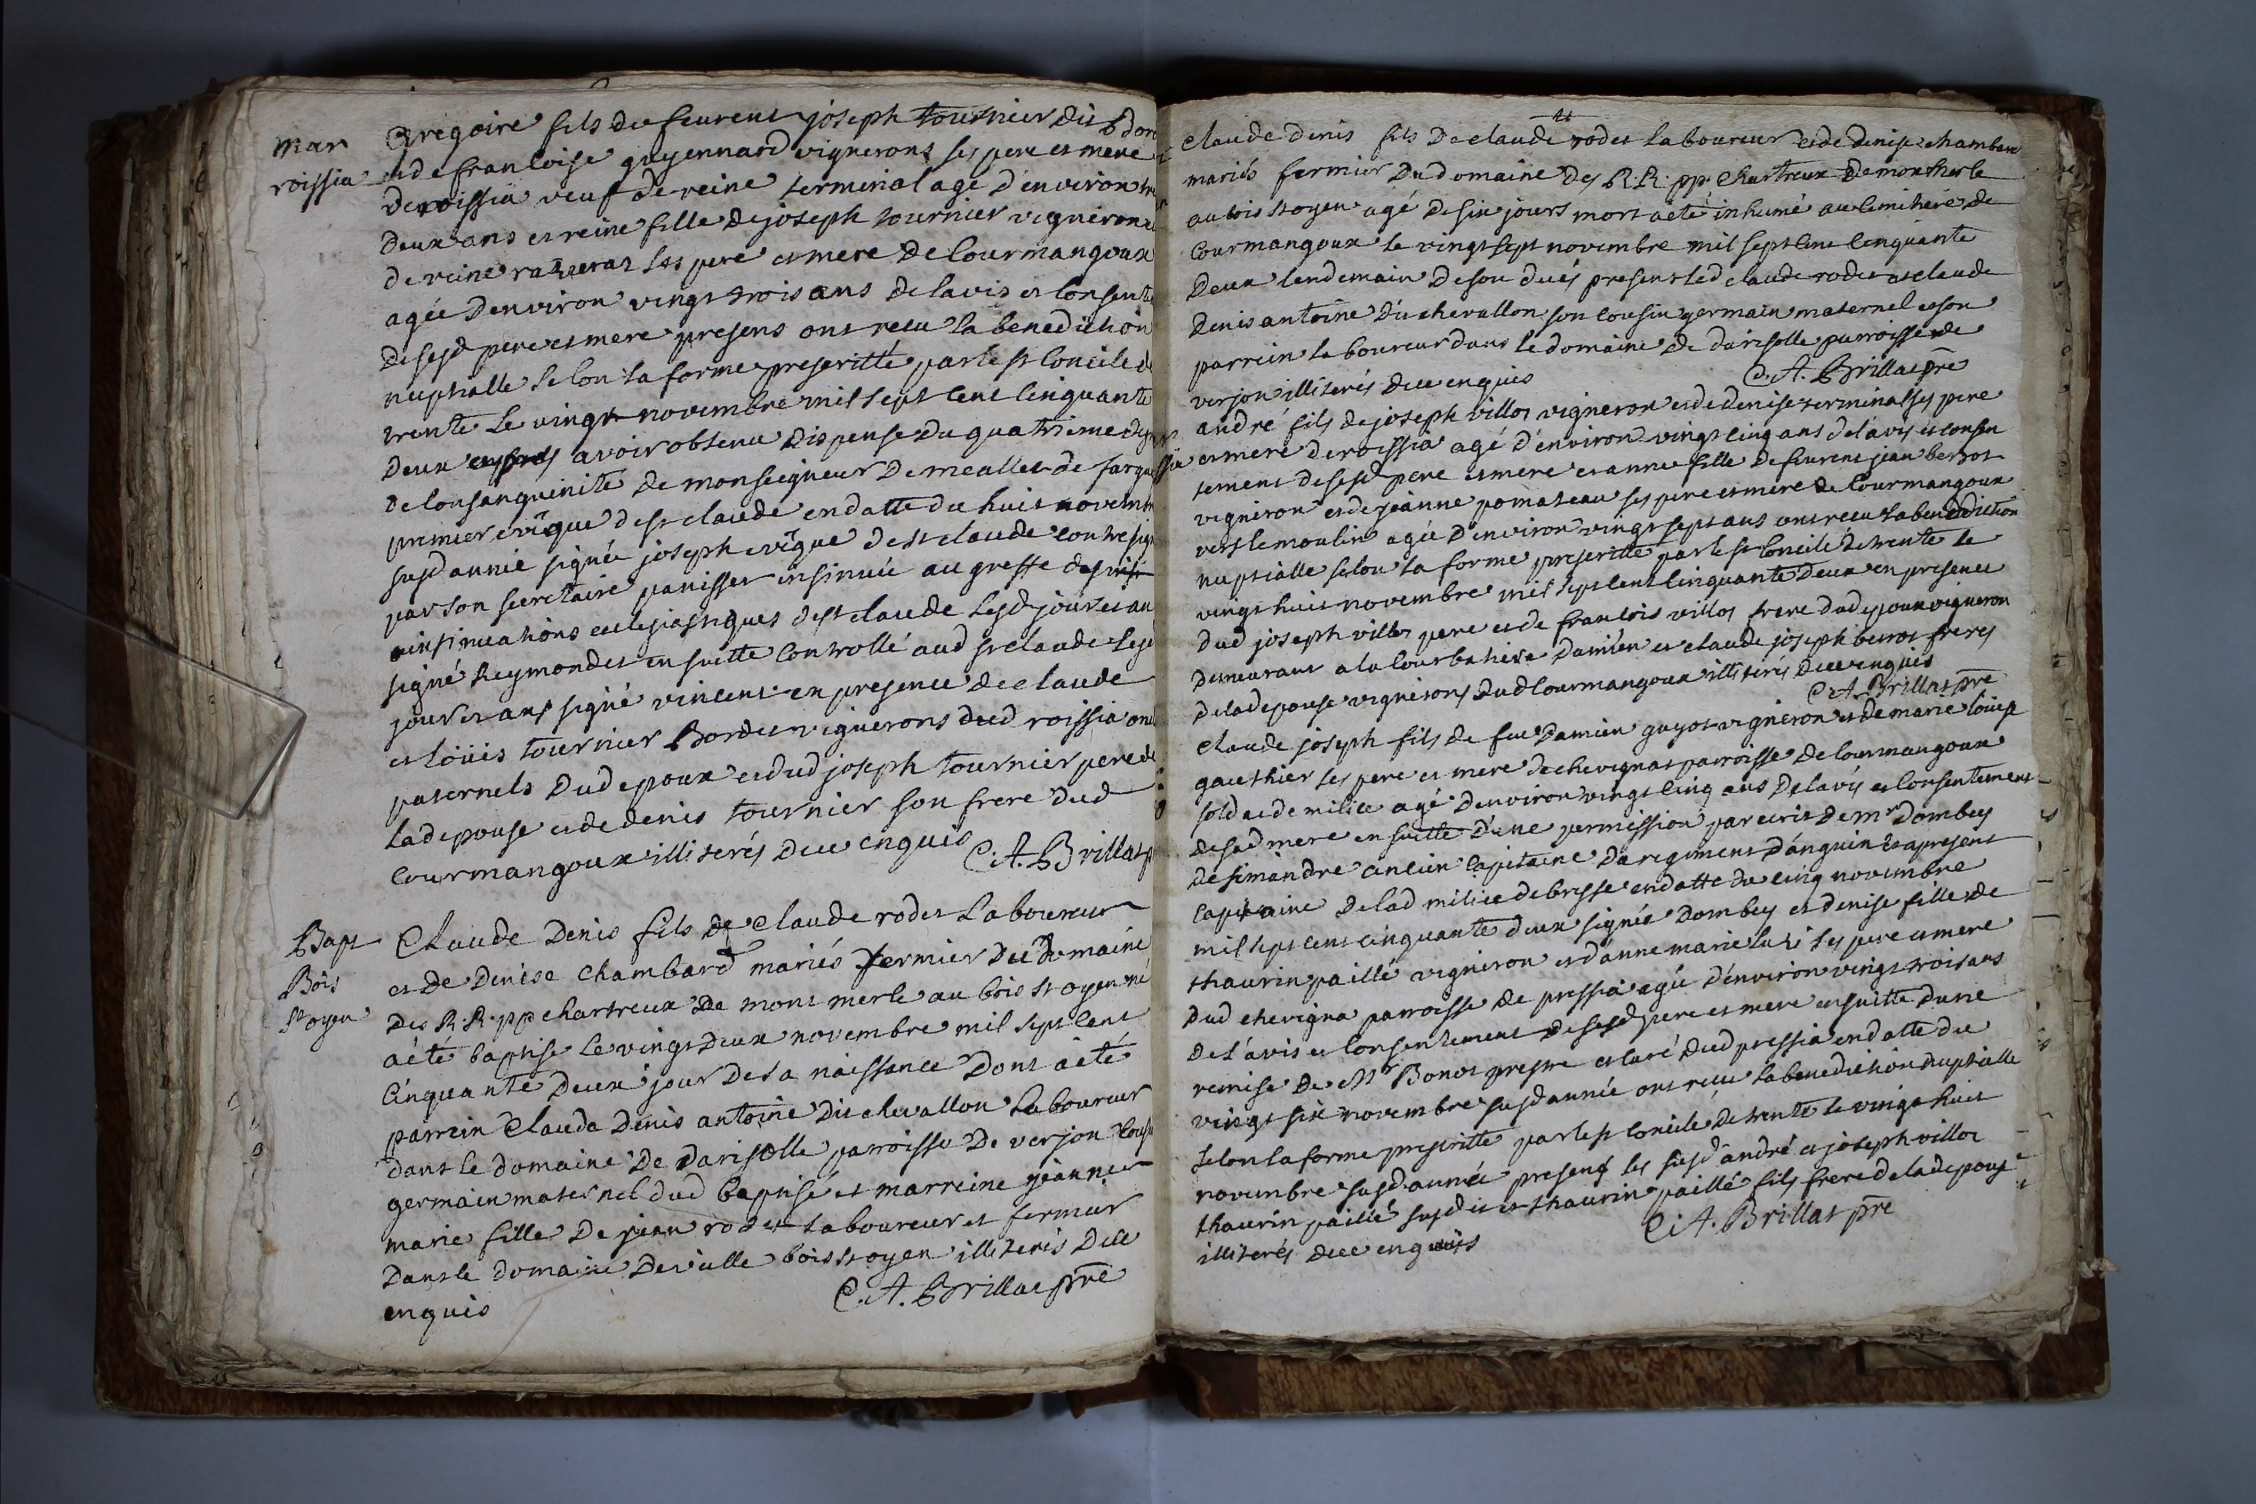 mar
roissia
Gregoire fils de feurent joseph tournier dit Bdor
et de francoise guyennard vignerons ses pere et mere
de roissia veuf de reine terminal agé d'environ
deux ans et reine fille de joseph tournier vigneron
de reine ses pere et mere de Courmangoux
agée denviron vingt trois ans de lavis et consente
de sesd pere et mere presens ont recu la benediction
nuptialle selon la forme prescritte par le st Concile de
trente le vingt novembre mil sept cent cinquante
deux avoir obtenu dispense du quatrieme
de Consanguinité de monseigneur de meallet de fargue
premier evêque de st claude en datte du huit novembre
susd année signée joseph evêque de st claude contresigné
par son secretaire panisset insinuée au greffe des
insinuations eclesiastiques de st claude lesd jour et an
signé Reymondet ensuitte Controllé aud st claude lesd
jour et ans signé vincent en presence de claude
et loüis tournier Bordet vignerons dud roissia
paternels dud epoux et dud joseph tournier pere de
lad epouse et de denis tournier son frere dud
Courmangoux illiterés de ce enquis C. A. Brillat p
Bapt
Bois
st oyen
Claude Denis fils de claude rodet laboureur
et de Denise chambard mariés fermier du Domaine
des R. R. pp chartreux de mont merle au bois st oyen né
a été baptise le vingt deux novembre mil sept cent
Cinquante deux jour de sa naissance dont a été
parrein Claude Denis antoine du chevallon laboureur
dans le domaine de darisolle parroisse de verjon cousin
germain maternel dud baptisé et marreine jeanne
marie fille de jean rodet laboureur et fermier
dans le domaine de bois st oyen illiterés de ce
enquis C. A. Brillat pre
claude denis fils de claude rodet laboureur et de denise chambard
mariés fermier du domaine des R. R. pp. chartreux de montmerle
au bois st oyen agé de six jours mort a eté inhumé au cimitiere de
Courmangoux le vingt sept novembre mil sept cent cinquante
deux lendemain de son ducés present led claude rodet et claude
denis antoine du chevallon son cousin germain maternel et son
parrein laboureur dans le domaine de darisolle parroisse de
verjon illiterés de ce enquis C. A. Brillat pre
andré fils de joseph villot vigneron et de denise terminal ses pere
et mere de roissia agé d'environ vingt cinq ans de l'avis et consen
tement de sesd pere et mere et anne fille de feurent jean berrot
vigneron et de jeanne pomateau ses pere et mere de Courmangoux
vers le moulin agée d'environ vingt sept ans ont recu la benediction
nuptialle selon la forme prescritte par le st Concile de trente le
vingt huit novembre mil sept cent cinquante deux en presence
dud joseph villot pere et de francois villot frere dud epoux vigneron
demeurant a la Courbatiere damien et claude joseph berrot freres
de lad epouse vignerons dud Courmangoux illiterés de ce enquis
C. A. Brillat pre
Claude joseph fils de feu damien guyot vigneron et de marie loüise
gauthier ses pere et mere de chevignat parroisse de Courmangoux
soldat de milice agé denviron vingt cinq ans de lavis et consentement
de sad mere ensuitte d'une permission par ecrit de mr Dombey
de simandre ancien Capitaine du regiment d'anguin et apresent
Capitaine de lad milice de bresse en datte du cinq novembre
mil sept cent cinquante deux signée Dombey et denise fille de
thaurin paillé vigneron et d'anne marie ses pere et mere
dud chevigna parroisse de pressia agée d'environ vingt trois ans
de l'avis et consentement de sesd pere et mere ensuitte dune
remise de Mr Bonot prestre et curé dud pressia en datte du
vingt six novembre susd année ont recu la benediction nuptialle
selon la forme prescritte par le st concile de trente le vingt huit
novembre susd année presens les susd andré et joseph villot
thaurin paillé susdit et thaurin paillé fils frere de lad epouse
illiterés de ce enquis C. A. Brillat pre